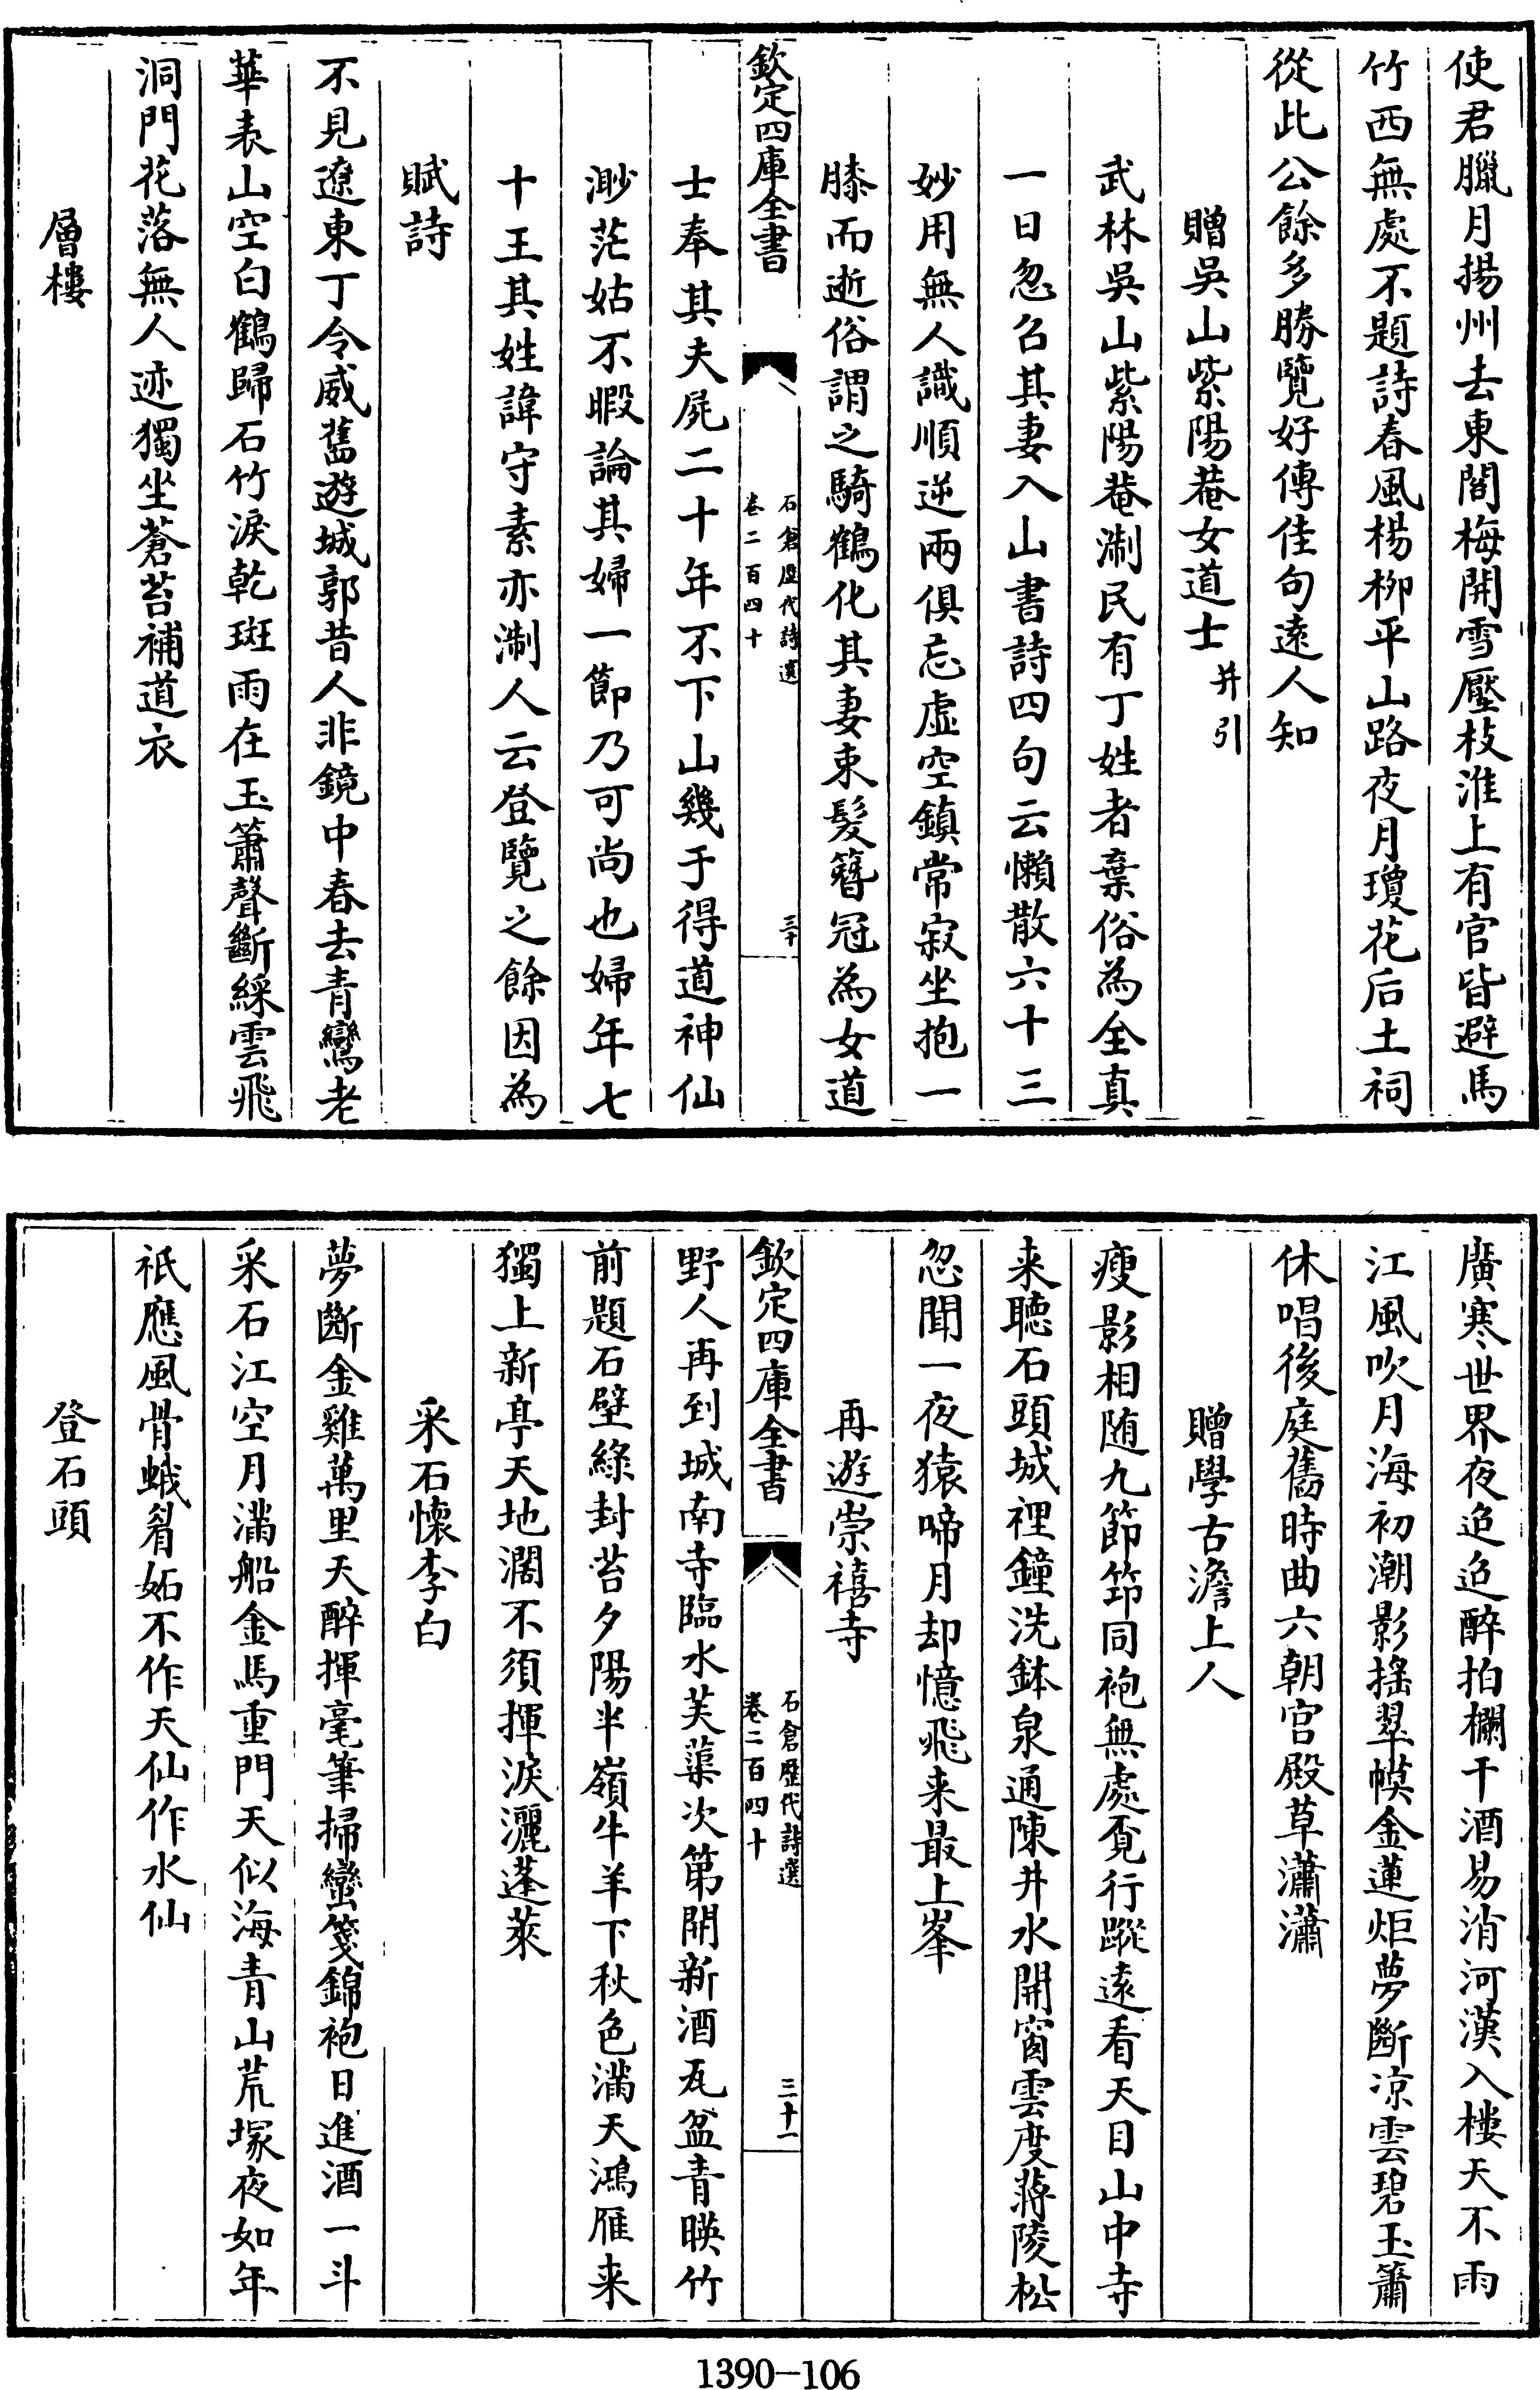 使君臘月揚州去東閤梅開雪壓枝淮上有官皆避馬
竹西無處不題詩春風楊柳平山路夜月瓊花后土祠
從此公餘多勝覽好傳佳句遠人知
贈吳山紫陽菴女道士并引
武林吳山紫陽菴淛民有丁姓者棄俗為全真
一日忽召其妻入山書詩四句云懶散六十三
妙用無人識順逆兩俱忘虛空鎮常寂坐抱一
膝而逝俗謂之騎鶴化其妻束髮簪冠為女道
欽定四庫全書
石倉歷代詩選
卷二百四十
三十
士奉其夫屍二十年不下山幾于得道神仙
渺茫姑不暇論其婦一節乃可尚也婦年七
十王其姓諱守素亦淛人云登覽之餘因為
賦詩
不見遼東丁令威舊遊城郭昔人非鏡中春去青鸞老
華表山空白鶴歸石竹淚乾斑雨在玉簫聲斷綵雲飛
洞門花落無人迹獨坐蒼苔補道衣
層樓
廣寒世界夜迢迢醉拍欄干酒易消河漢入樓天不雨
江風吹月海初潮影搖翠幙金蓮炬夢斷凉雲碧玉簫
休唱後庭舊時曲六朝宫殿草瀟瀟
贈學古澹上人
瘦影相随九節筇同袍無處覔行蹤遠看天目山中寺
来聽石頭城裡鐘洗鉢泉通陳井水開窗雲度蔣陵松
忽聞一夜猿啼月却憶飛来最上峯
再遊崇禧寺
欽定四庫全書
石倉歷代詩選
卷二百四十
三十一
野人再到城南寺臨水芙蕖次第開新酒瓦盆青暎竹
前題石壁綠封苔夕陽半嶺牛羊下秋色滿天鴻雁来
獨上新亭天地濶不須揮淚灑蓬萊
采石懷李白
夢斷金雞萬里天醉揮毫筆掃蠻箋錦袍日進酒一斗
采石江空月滿船金馬重門天似海青山荒塚夜如年
祇應風骨蛾眉妬不作天仙作水仙
登石頭
1390-106